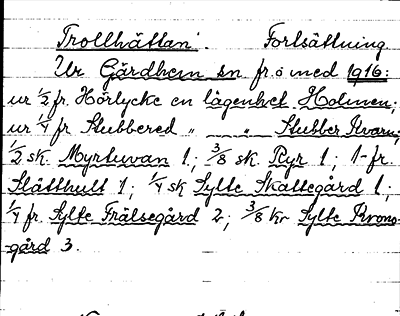 Trollhättan. Fortsättning
Ur Gärdhem sn fr o med 1916:
ur 1/2 fr. Hörlycke en lägenhet Holmen;
ur 1/4 fr Stubbered " " Stubber Kvarn;
1/2 sk. Myrtuvan 1; 3/8 sk. Ryr 1; 1 fr.
Slätthult 1; 1/4 sk Sylte Skattegård 1;
1/4 fr. Sylte Frälsegård 2; 3/8 kr Sylte Krono-
gård 3.